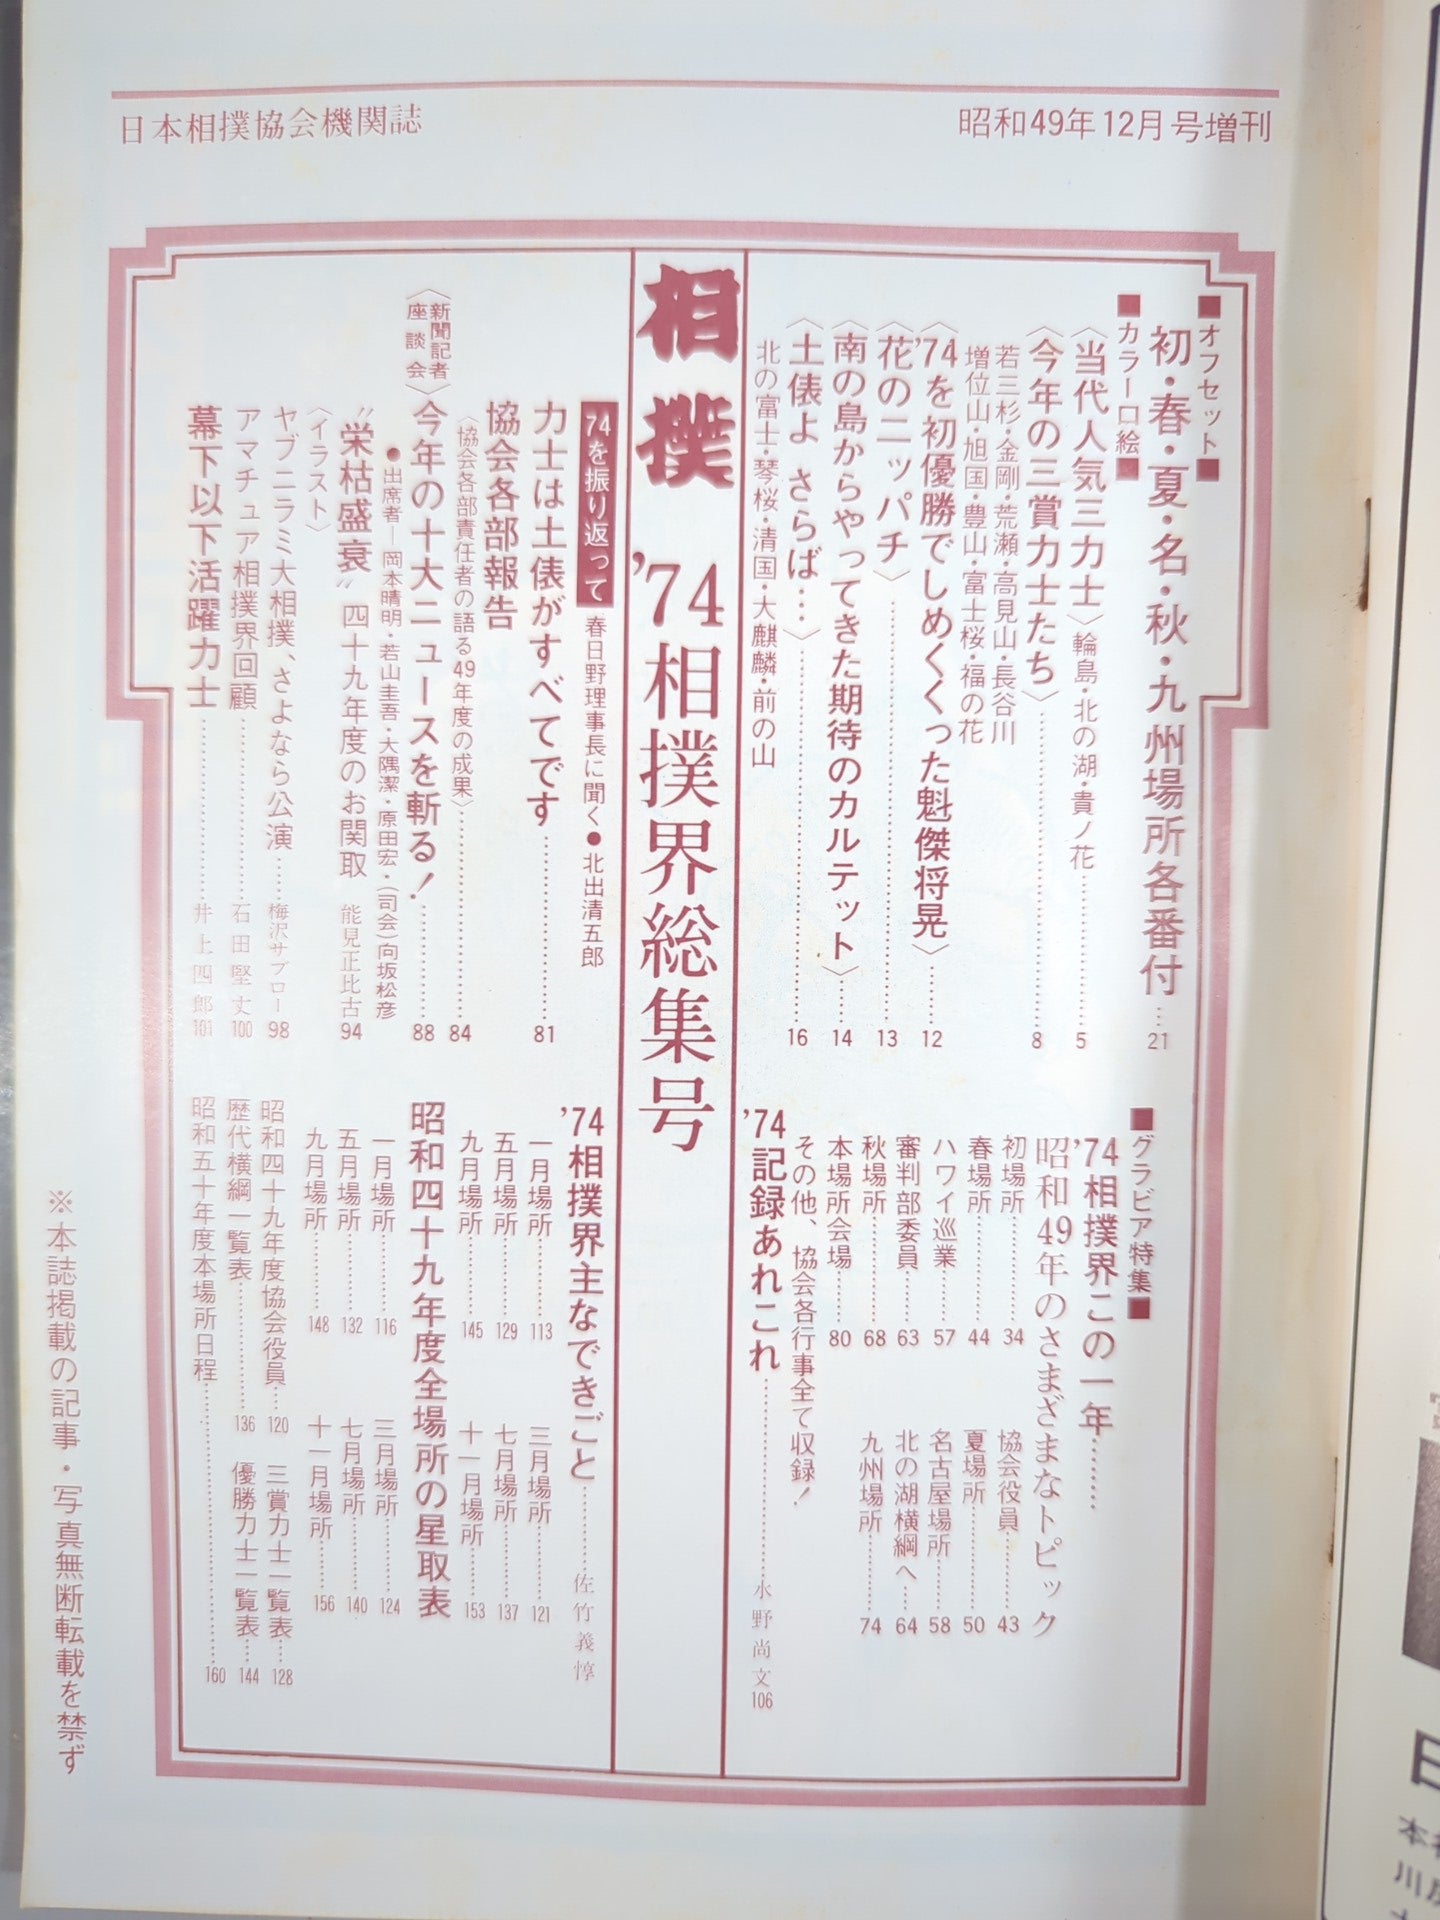 日本相撲協会機関誌
昭和49年12月号増刊
■オフセット■
初・春・夏・名・秋・九州場所各番付……21
■カラー口絵■
〈当代人気三力士〉輪島・北の湖・貴ノ花……5
〈今年の三賞力士たち〉……8
若三杉・金剛・荒瀬・高見山・長谷川
増位山・旭国・豊山・富士桜・福の花
〈'74を初優勝でしめくくった魁傑将晃〉……12
〈花のニッパチ〉……13
〈南の島からやってきた期待のカルテット〉……14
〈土俵よ さらば…〉……16
北の富士・琴桜・清国・大麒麟・前の山
■グラビア特集■
'74相撲界この一年……
昭和49年のさまざまなトピック
初場所……34
協会役員……43
春場所……44
夏場所……50
ハワイ巡業……57
名古屋場所……58
審判部委員……63
北の湖横綱へ……64
秋場所……68
九州場所……74
本場所会場……80
その他、協会各行事全て収録！
'74記録あれこれ……水野尚文106
相撲 '74相撲界総集号
74を振り返って 春日野理事長に聞く●北出清五郎
力士は土俵がすべてです……81
協会各部報告
〈協会各部責任者の語る49年度の成果〉……84
〈新聞記者座談会〉今年の十大ニュースを斬る！……88
●出席者―岡本晴明・若山圭吾・大隅潔・原田宏・(司会)向坂松彦
〝栄枯盛衰〟四十九年度のお関取 能見正比古94
〈イラスト〉
ヤブニラミ大相撲、さよなら公演……梅沢サブロー98
アマチュア相撲界回顧……石田堅丈100
幕下以下活躍力士……井上四郎101
'74相撲界主なできごと……佐竹義惇
一月場所……113
三月場所……121
五月場所……129
七月場所……137
九月場所……145
十一月場所……153
昭和四十九年度全場所の星取表
一月場所……116
三月場所……124
五月場所……132
七月場所……140
九月場所……148
十一月場所……156
昭和四十九年度協会役員……120
三賞力士一覧表……128
歴代横綱一覧表……136
優勝力士一覧表……144
昭和五十年度本場所日程……160
※本誌掲載の記事・写真無断転載を禁ず